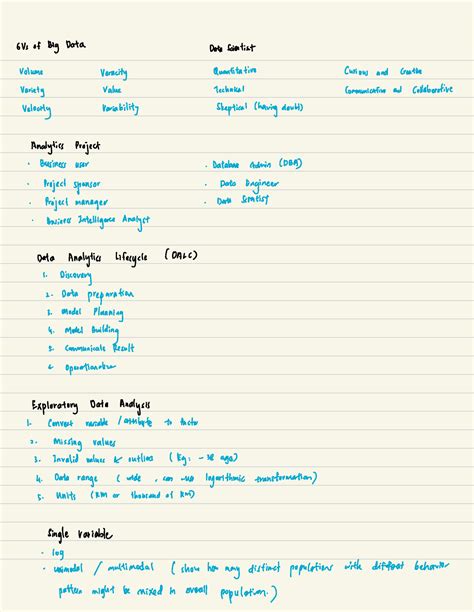 6Vs of Big Data
Data Scientist
Volume Veracity Quantitative Curious and Creative
Variety Value Technical Communicative and Collaborative
Velocity Variability Skeptical (having doubt)
Analytics Project
· Business user · Database Admin (DBA)
· Project sponsor · Data Engineer
· Project manager · Data Scientist
· Business Intelligence Analyst
Data Analytics Lifecycle (DALC)
1. Discovery
2. Data preparation
3. Model Planning
4. Model Building
5. Communicate Result
6. Operationalize
Exploratory Data Analysis
1. Convert variable / attribute to factor
2. Missing values
3. Invalid values & outlies (Eg: -ve age)
4. Data range (wide, can use logarithmic transformation)
5. Units (RM or thousand of RMs)
Single Variable
· log
· unimodal / multimodal (show how many distinct populations with different behavior
pattern might be mixed in overall population.)